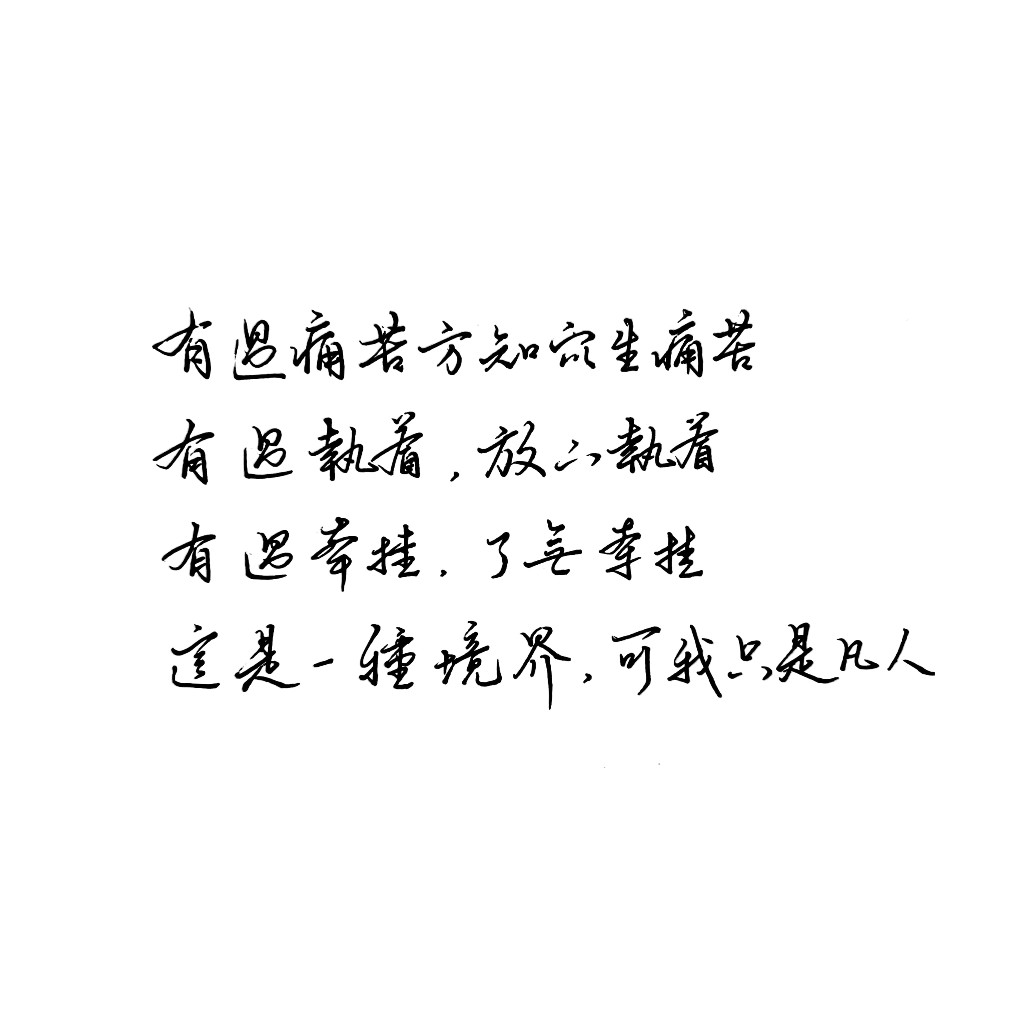 有過痛苦方知众生痛苦
有過執着,放下執着
有過牽挂,了無牽挂
这是一種境界,可我只是凡人